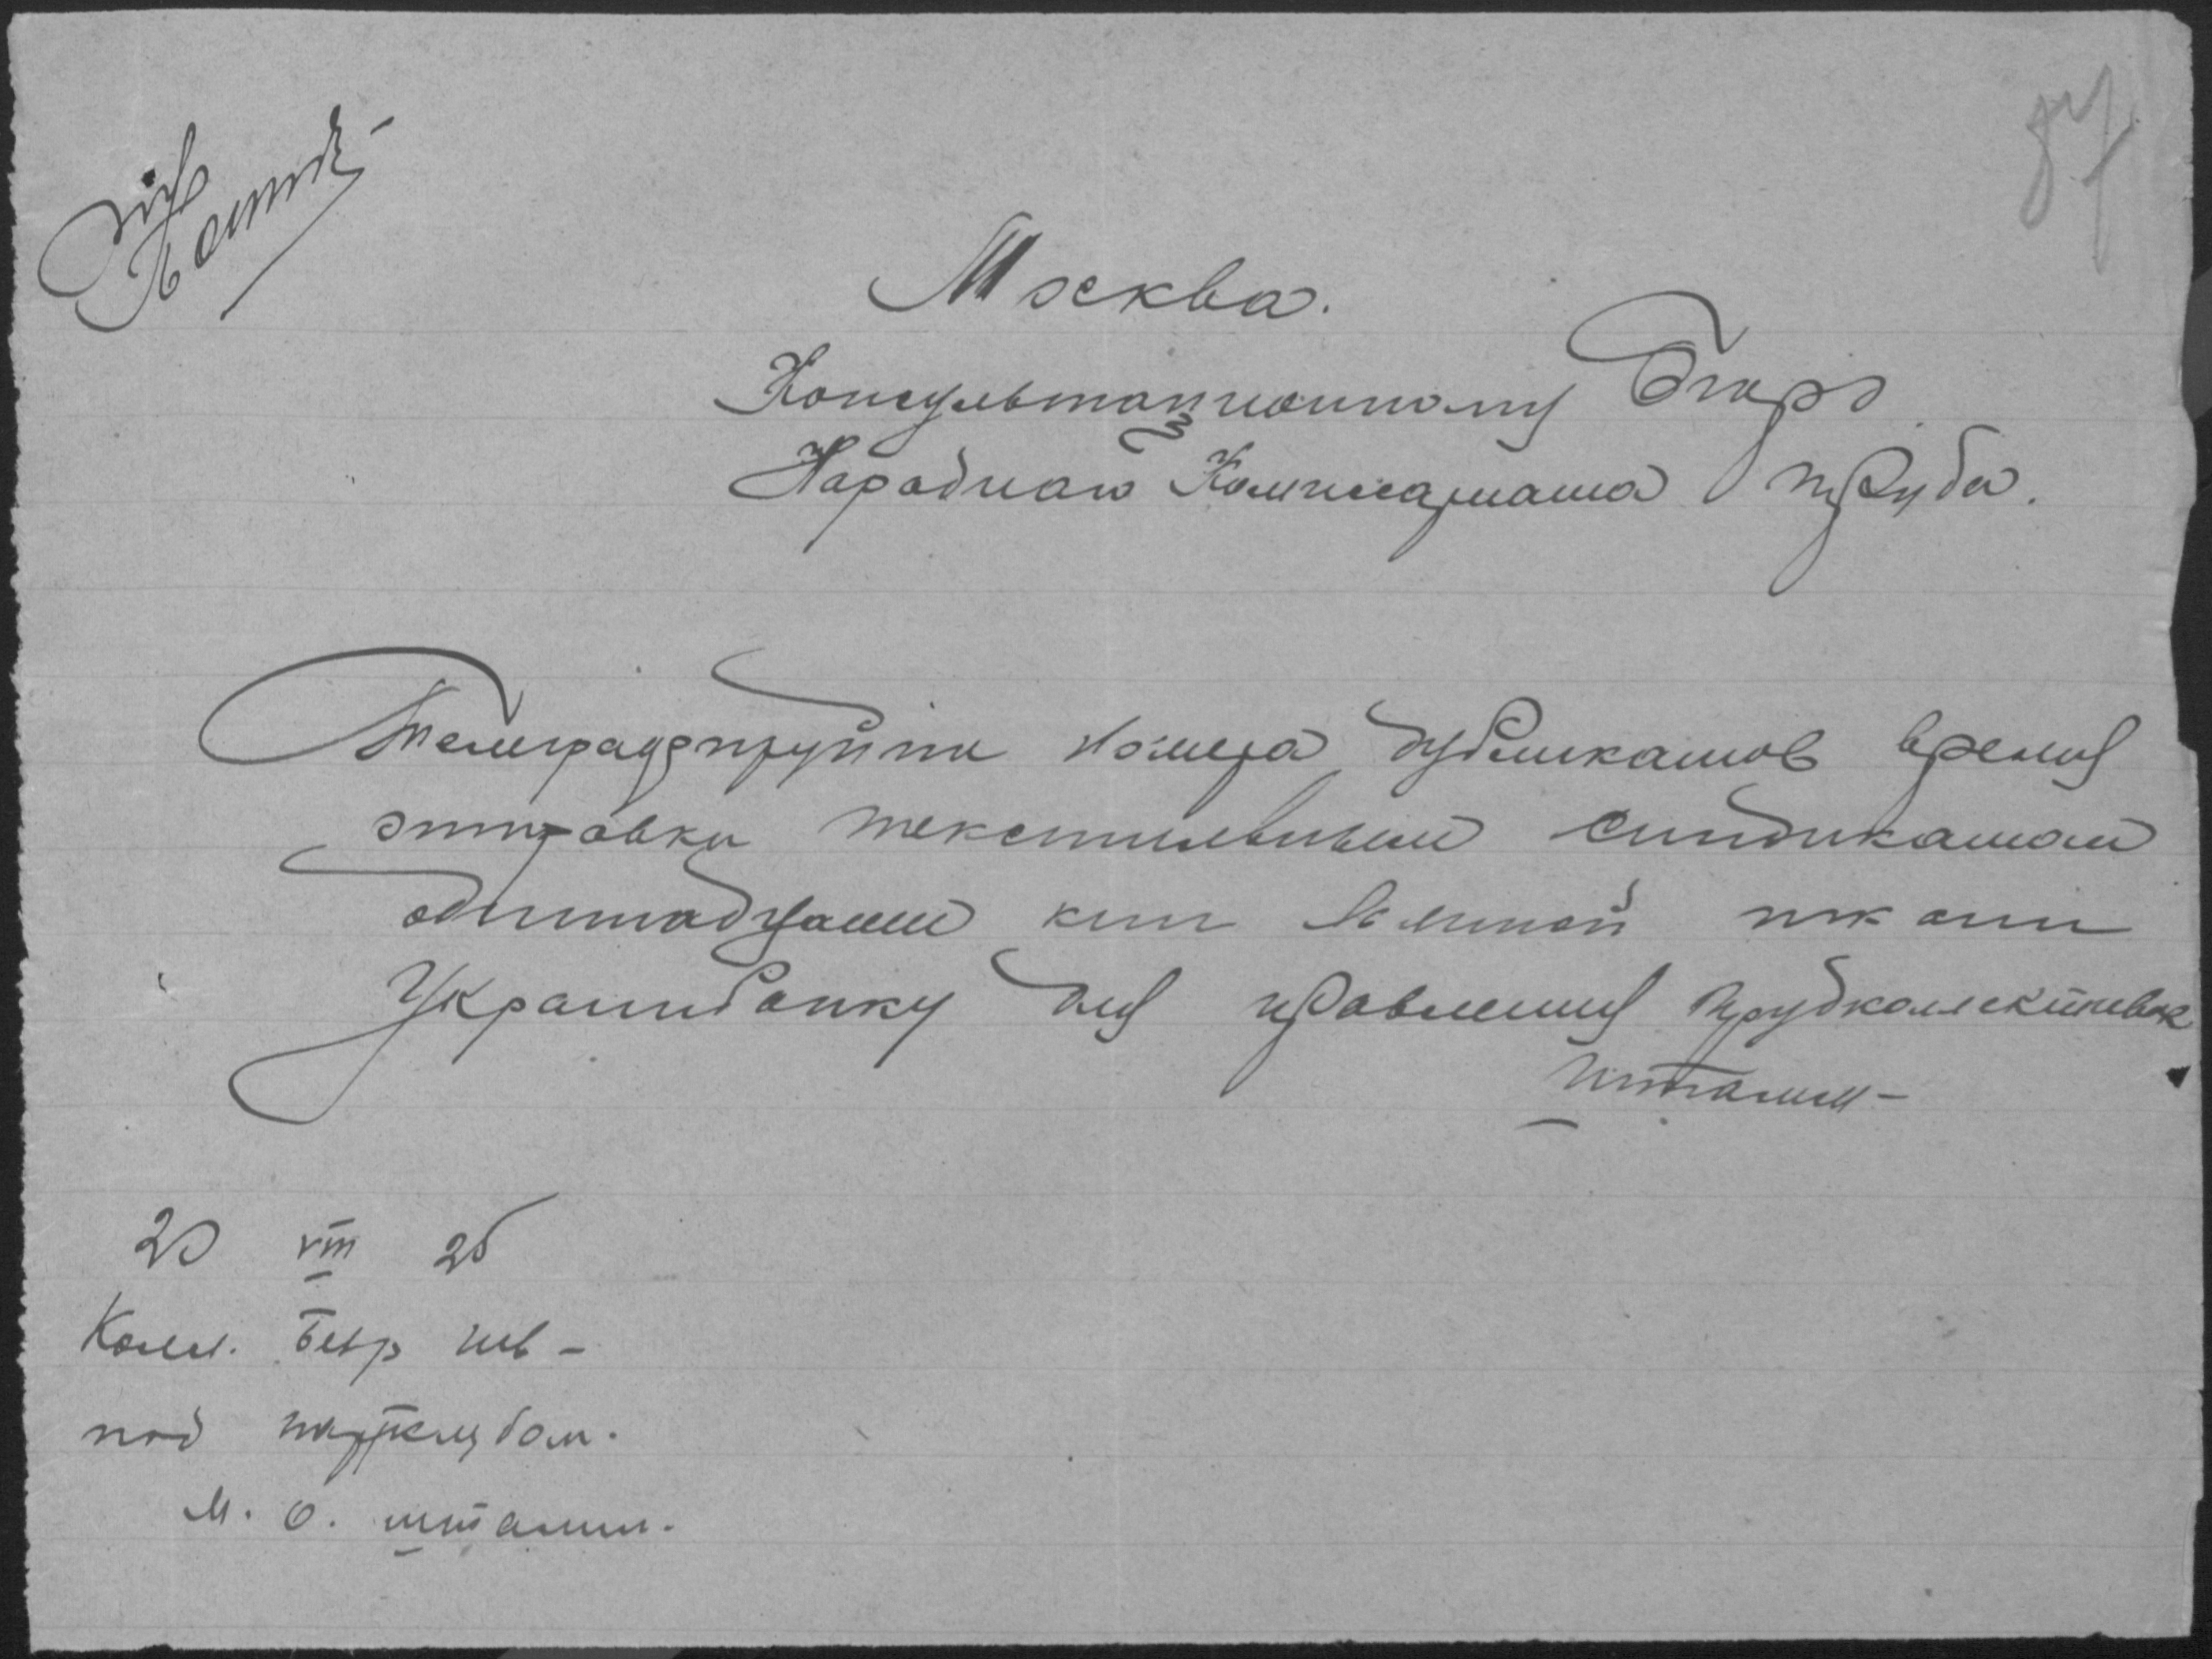 87
Москва.
Консультационному Бюро
Народнаго Комиссариата труда.
Телеграфируйти номера дубликатов время
отправки текстильным синдикатом
одинадцати кип ткани
Украинбанку для правления трудколективов
Штамм-
20 VIII 26
Комм. Бюр
под
М. О. штамм.